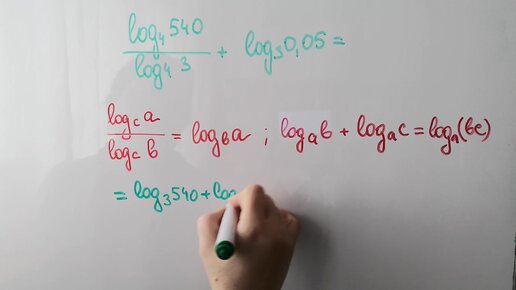 log₄540 / log₄3 + log₃0,05 =
log_c a / log_c b = log_b a ; log_a b + log_a c = log_a(bc)
= log₃540 + lo